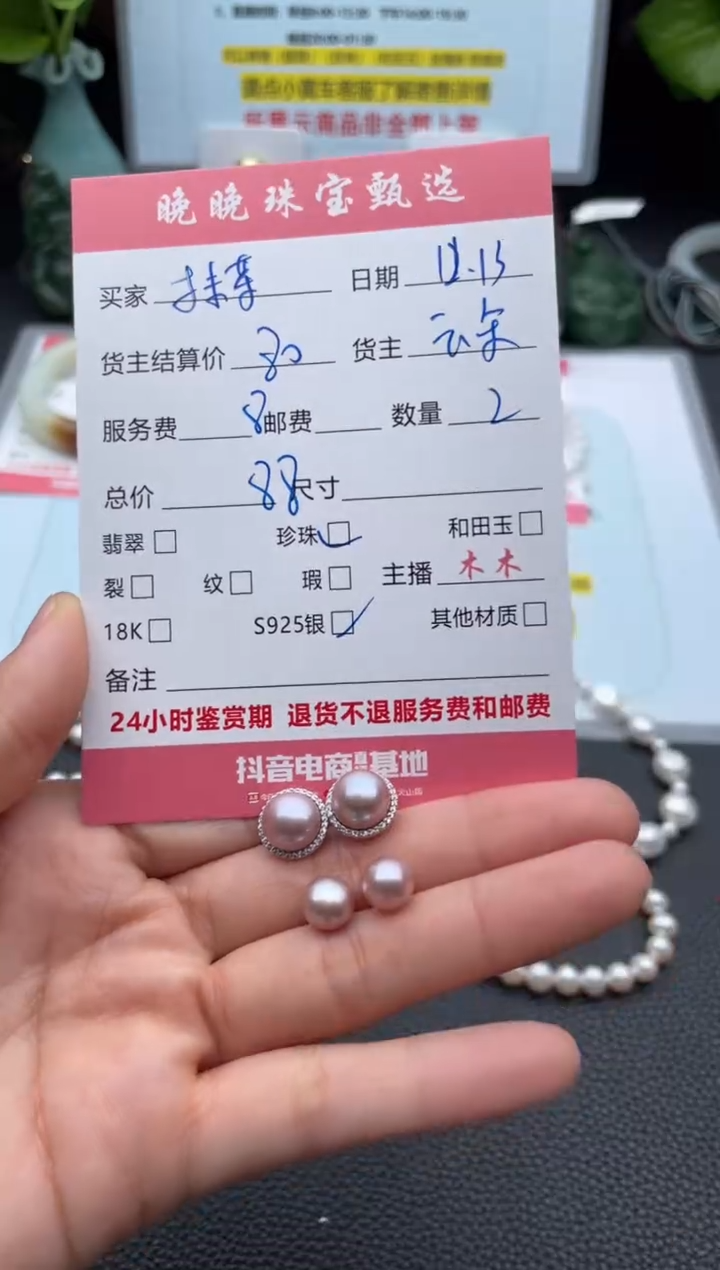 晚晚珠宝甄选
买家 日期 12.13
货主结算价 80 货主
服务费 8 邮费 数量 2
总价 88 尺寸
翡翠 珍珠 和田玉
裂 纹 瑕 主播 木木
18K S925银 其他材质
备注
24小时鉴赏期 退货不退服务费和邮费
抖音电商 基地